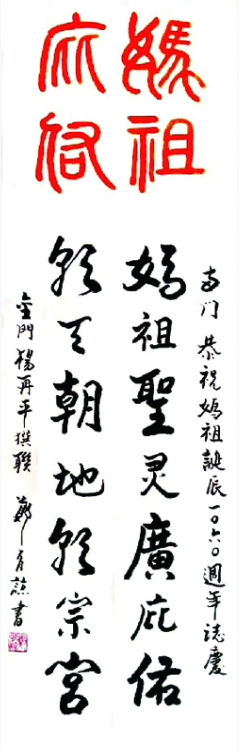 媽祖
门 恭祝媽祖誕辰一〇六〇週年誌慶
媽祖聖灵廣庇佑
朝天朝地朝宗宮
金門楊再平撰聯 鄭書